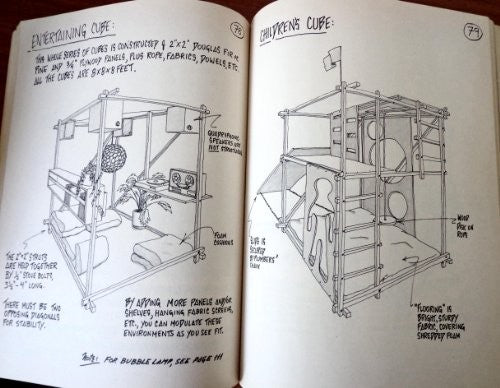 ENTERTAINING CUBE:
78
THIS WHOLE SERIES OF CUBES IS CONSTRUCTED of 2"x2" DOUGLAS FIR OR
PINE AND 3/4" PLYWOOD PANELS, PLUS ROPE, FABRICS, DOWELS, ETC.
ALL THE CUBES ARE 8x8x8 FEET.
QUADRIPHONIC
SPEAKERS ARE
NOT STRUCTURAL
FOAM
CUSHIONS
THE 2"x2" STRUTS
ARE HELD TOGETHER
BY 1/4" STOVE BOLTS,
3 1/2 - 4" LONG.
THERE MUST BE TWO
OPPOSING DIAGONALS
FOR STABILITY.
BY ADDING MORE PANELS AND/OR
SHELVES, HANGING FABRIC SCREENS,
ETC., YOU CAN MODULATE THESE
ENVIRONMENTS AS YOU SEE FIT.
Note: FOR BUBBLE LAMP, SEE PAGE 111
CHILDREN'S CUBE:
79
WOOD
DISK ON
ROPE
IS
SECURED
BY PLUMBERS'
CHAIN
"FLOORING" IS
BRIGHT, STURDY
FABRIC, COVERING
SHREDDED FOAM